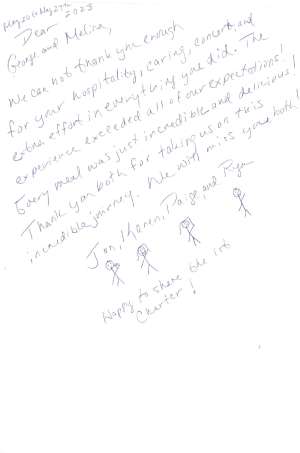 May 20 to May 27th 2023
Dear
George and Melina,
We can not thank you enough
for your hospitality, caring, concern, and
extra effort in everything you did. The
experience exceeded all of our expectations!
Every meal was just incredible and delicious!
Thank you both for taking us on this
incredible journey. We will miss you both!
Jon, Karen, Paige, and Ryan
Happy to share the 1st
Charter!